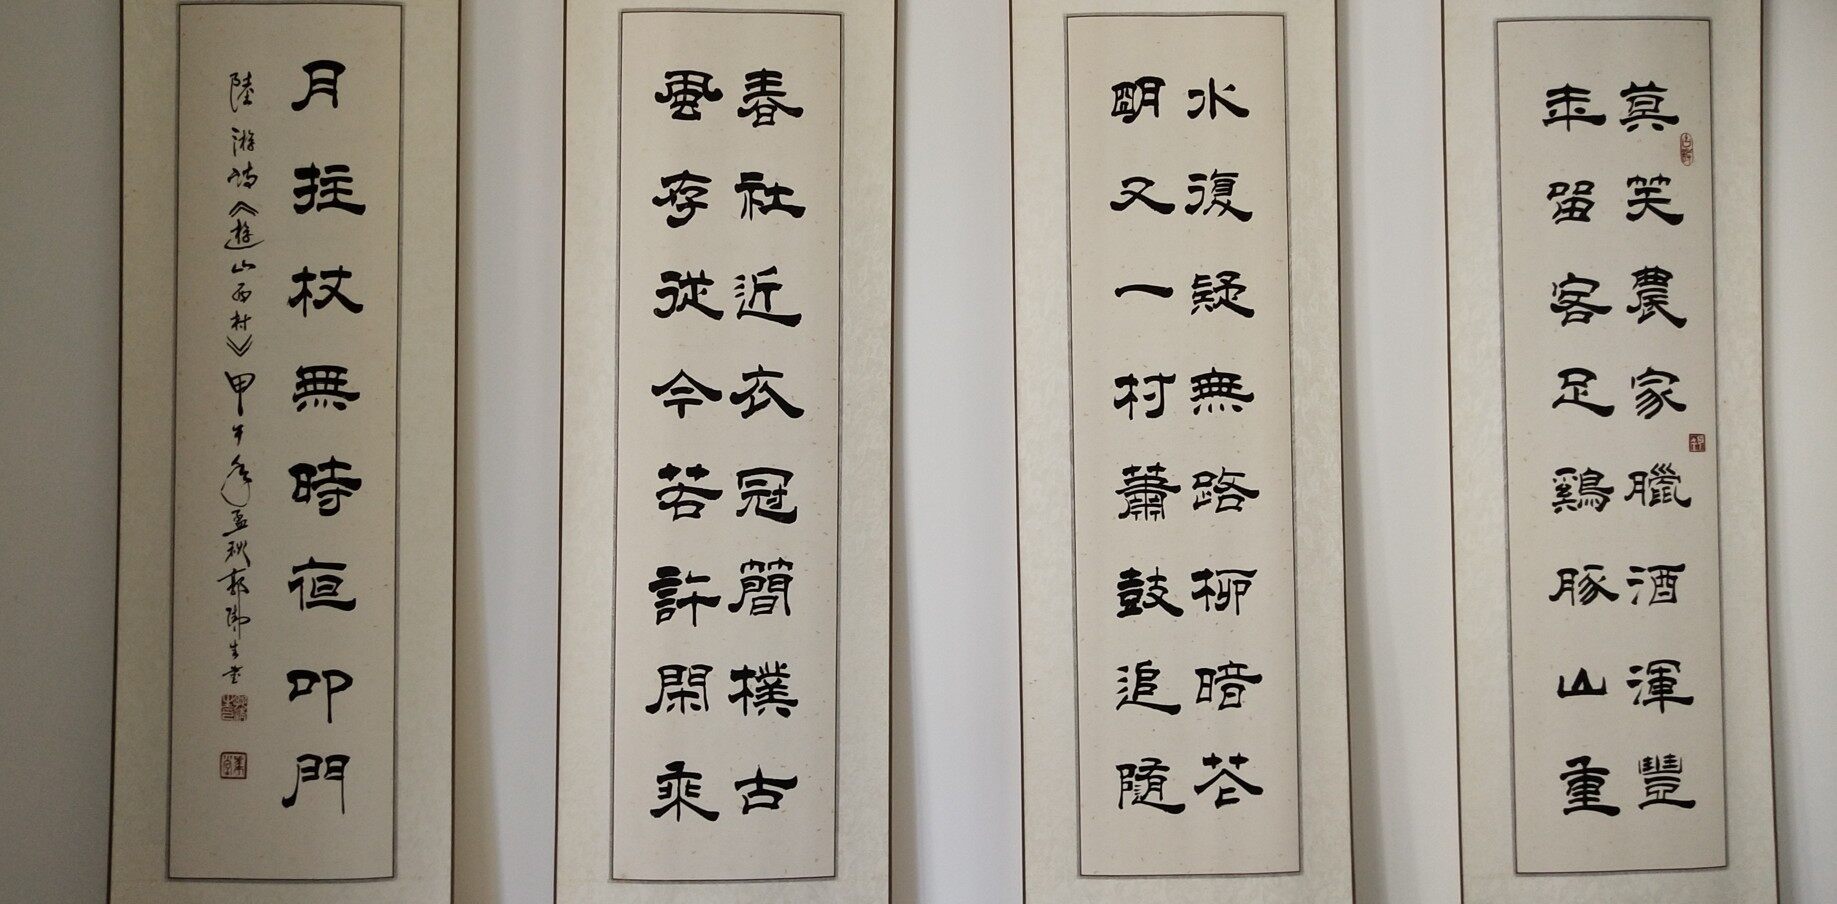 莫笑農家臘酒渾豐
年留客足鷄豚山重
水復疑無路柳暗花
明又一村蕭鼓追隨
春社近衣冠簡樸古
風存從今若許閑乘
月拄杖無時夜叩門
陸游詩《遊山西村》甲午年孟秋郭陽生書